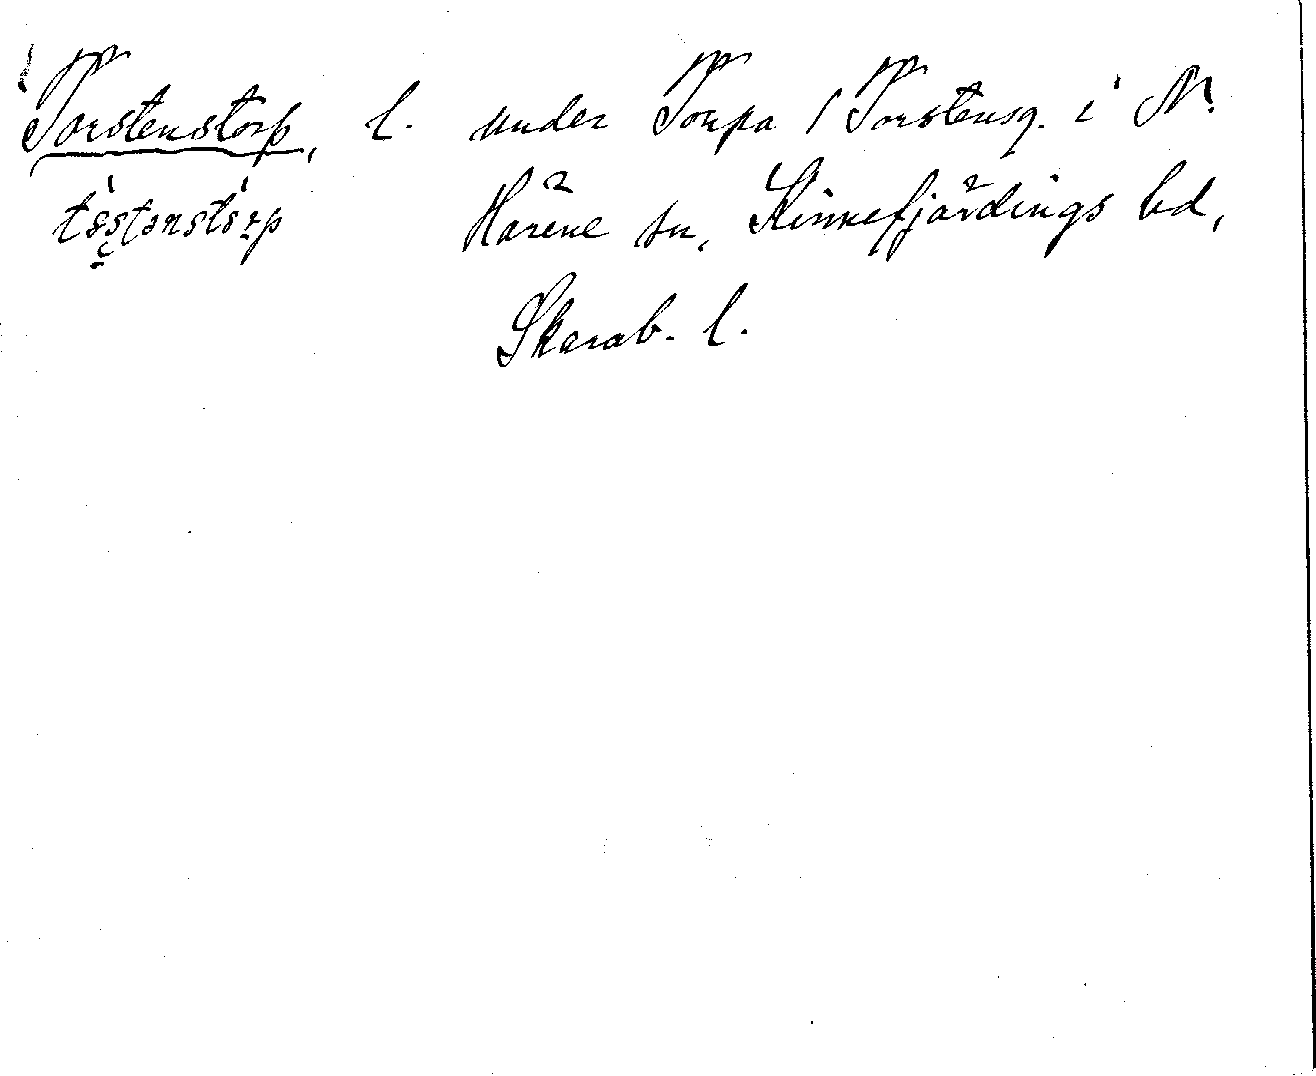 Torstenstorp, l. under Torpa / Torstensg. i N.
Härene sn, Kinnefjärdings hd,
Skarab. l.